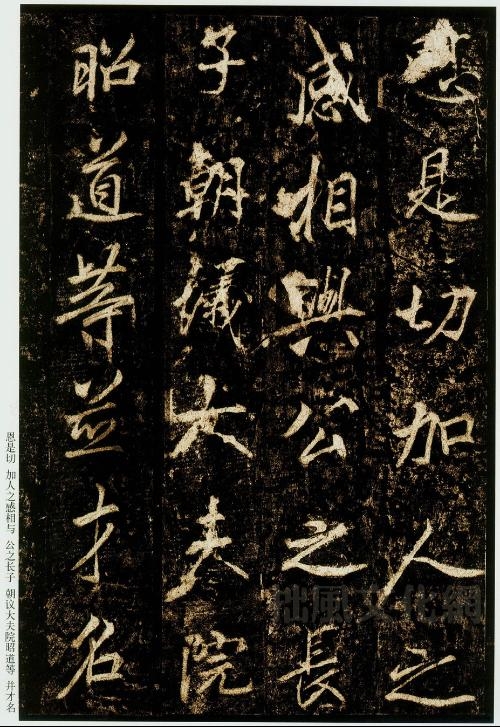 恩是切加人之
感相與公之長
子朝議大夫院
昭道等並才名
恩是切 加人之感相与 公之长子 朝议大夫院昭道等 并才名
拙風文化網